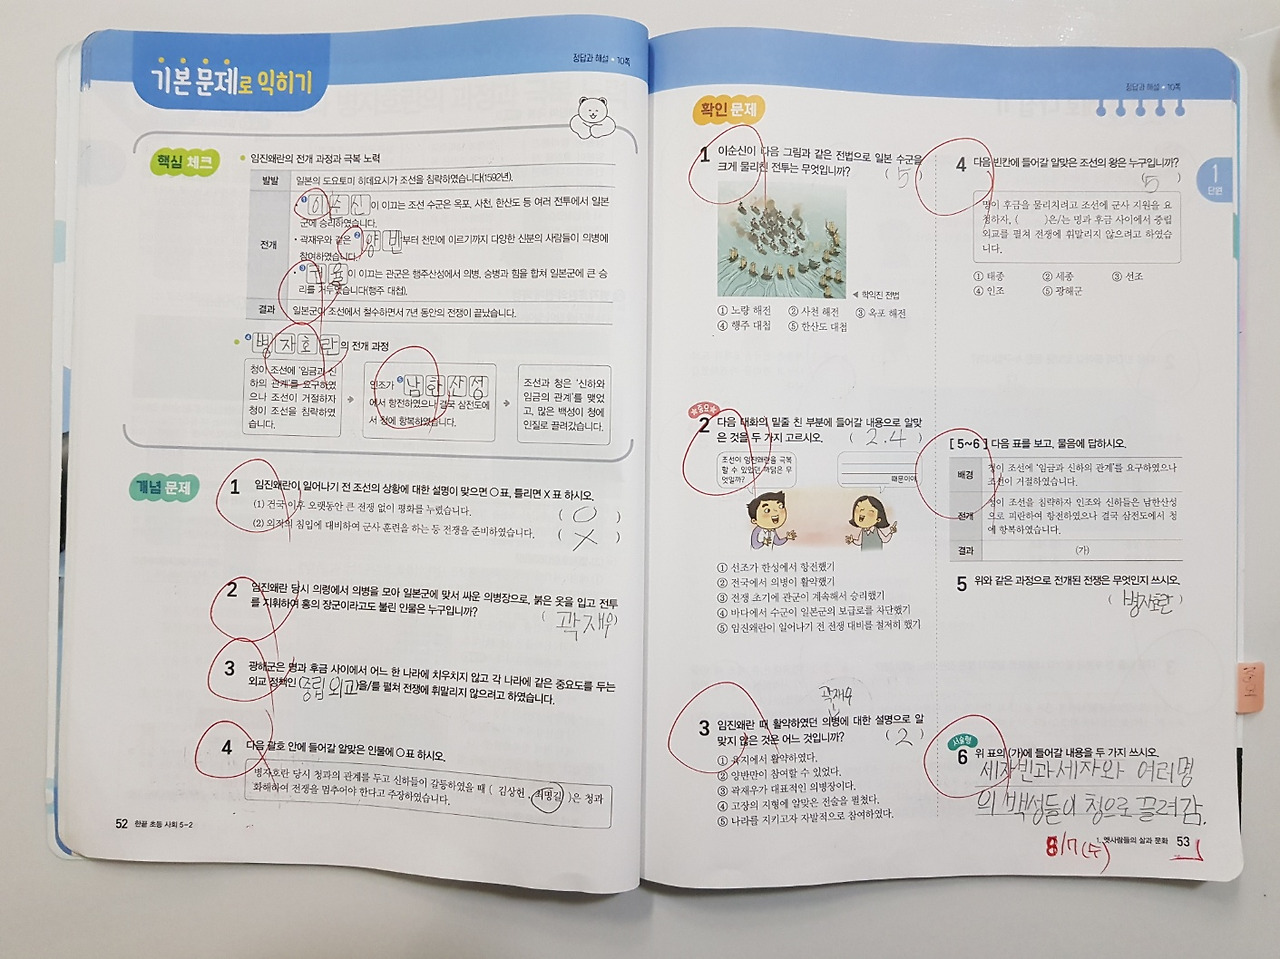 정답과 해설 • 10쪽
기본 문제로 익히기
핵심 체크
임진왜란의 전개 과정과 극복 노력
발발 일본의 도요토미 히데요시가 조선을 침략하였습니다(1592년).
전개
• ❶ 이순신이 이끄는 조선 수군은 옥포, 사천, 한산도 등 여러 전투에서 일본
군에 승리하였습니다.
• 곽재우와 같은 ❷ 양반부터 천민에 이르기까지 다양한 신분의 사람들이 의병에
참여하였습니다.
• ❸ 권율이 이끄는 관군은 행주산성에서 의병, 승병과 힘을 합쳐 일본군에 큰 승
리를 거두었습니다(행주 대첩).
결과 일본군이 조선에서 철수하면서 7년 동안의 전쟁이 끝났습니다.
❹ 병자호란의 전개 과정
청이 조선에 '임금과 신
하의 관계'를 요구하였
으나 조선이 거절하자
청이 조선을 침략하였
습니다.
인조가 ❺ 남한산성
에서 항전하였으나 결국 삼전도에
서 청에 항복하였습니다.
조선과 청은 '신하와
임금의 관계'를 맺었
고, 많은 백성이 청에
인질로 끌려갔습니다.
개념 문제
1 임진왜란이 일어나기 전 조선의 상황에 대한 설명이 맞으면 ○표, 틀리면 X표 하시오.
(1) 건국 이후 오랫동안 큰 전쟁 없이 평화를 누렸습니다. ( ○ )
(2) 외적의 침입에 대비하여 군사 훈련을 하는 등 전쟁을 준비하였습니다. ( X )
2 임진왜란 당시 의령에서 의병을 모아 일본군에 맞서 싸운 의병장으로, 붉은 옷을 입고 전투
를 지휘하여 홍의 장군이라고도 불린 인물은 누구입니까?
( 곽재우 )
3 광해군은 명과 후금 사이에서 어느 한 나라에 치우치지 않고 각 나라에 같은 중요도를 두는
외교 정책인 (중립외교)을/를 펼쳐 전쟁에 휘말리지 않으려고 하였습니다.
4 다음 괄호 안에 들어갈 알맞은 인물에 ○표 하시오.
병자호란 당시 청과의 관계를 두고 신하들이 갈등하였을 때 ( 김상헌, 최명길 )은 청과
화해하여 전쟁을 멈추어야 한다고 주장하였습니다.
52 한끝 초등 사회 5-2
정답과 해설 • 10쪽
확인 문제
1 이순신이 다음 그림과 같은 전법으로 일본 수군을
크게 물리친 전투는 무엇입니까? ( 5 )
◀ 학익진 전법
① 노량 해전 ② 사천 해전 ③ 옥포 해전
④ 행주 대첩 ⑤ 한산도 대첩
중요
2 다음 대화의 밑줄 친 부분에 들어갈 내용으로 알맞
은 것을 두 가지 고르시오. ( 2.4 )
조선이 임진왜란을 극복
할 수 있었던 까닭은 무
엇일까?
때문이야.
① 선조가 한성에서 항전했기
② 전국에서 의병이 활약했기
③ 전쟁 초기에 관군이 계속해서 승리했기
④ 바다에서 수군이 일본군의 보급로를 차단했기
⑤ 임진왜란이 일어나기 전 전쟁 대비를 철저히 했기
곽재우
3 임진왜란 때 활약하였던 의병에 대한 설명으로 알
맞지 않은 것은 어느 것입니까? ( 2 )
① 육지에서 활약하였다.
② 양반만이 참여할 수 있었다.
③ 곽재우가 대표적인 의병장이다.
④ 고장의 지형에 알맞은 전술을 펼쳤다.
⑤ 나라를 지키고자 자발적으로 참여하였다.
4 다음 빈칸에 들어갈 알맞은 조선의 왕은 누구입니까?
( 5 )
명이 후금을 물리치려고 조선에 군사 지원을 요
청하자, ( )은/는 명과 후금 사이에서 중립
외교를 펼쳐 전쟁에 휘말리지 않으려고 하였습니
다.
① 태종 ② 세종 ③ 선조
④ 인조 ⑤ 광해군
[ 5~6 ] 다음 표를 보고, 물음에 답하시오.
배경
청이 조선에 '임금과 신하의 관계'를 요구하였으나
조선이 거절하였습니다.
전개
청이 조선을 침략하자 인조와 신하들은 남한산성
으로 피란하여 항전하였으나 결국 삼전도에서 청
에 항복하였습니다.
결과 (가)
5 위와 같은 과정으로 전개된 전쟁은 무엇인지 쓰시오.
( 병자호란 )
서술형
6 위 표의 (가)에 들어갈 내용을 두 가지 쓰시오.
세자빈과 세자와 여러명
의 백성들이 청으로 끌려감.
1 단원
8/7(수)
1. 옛사람들의 삶과 문화 53